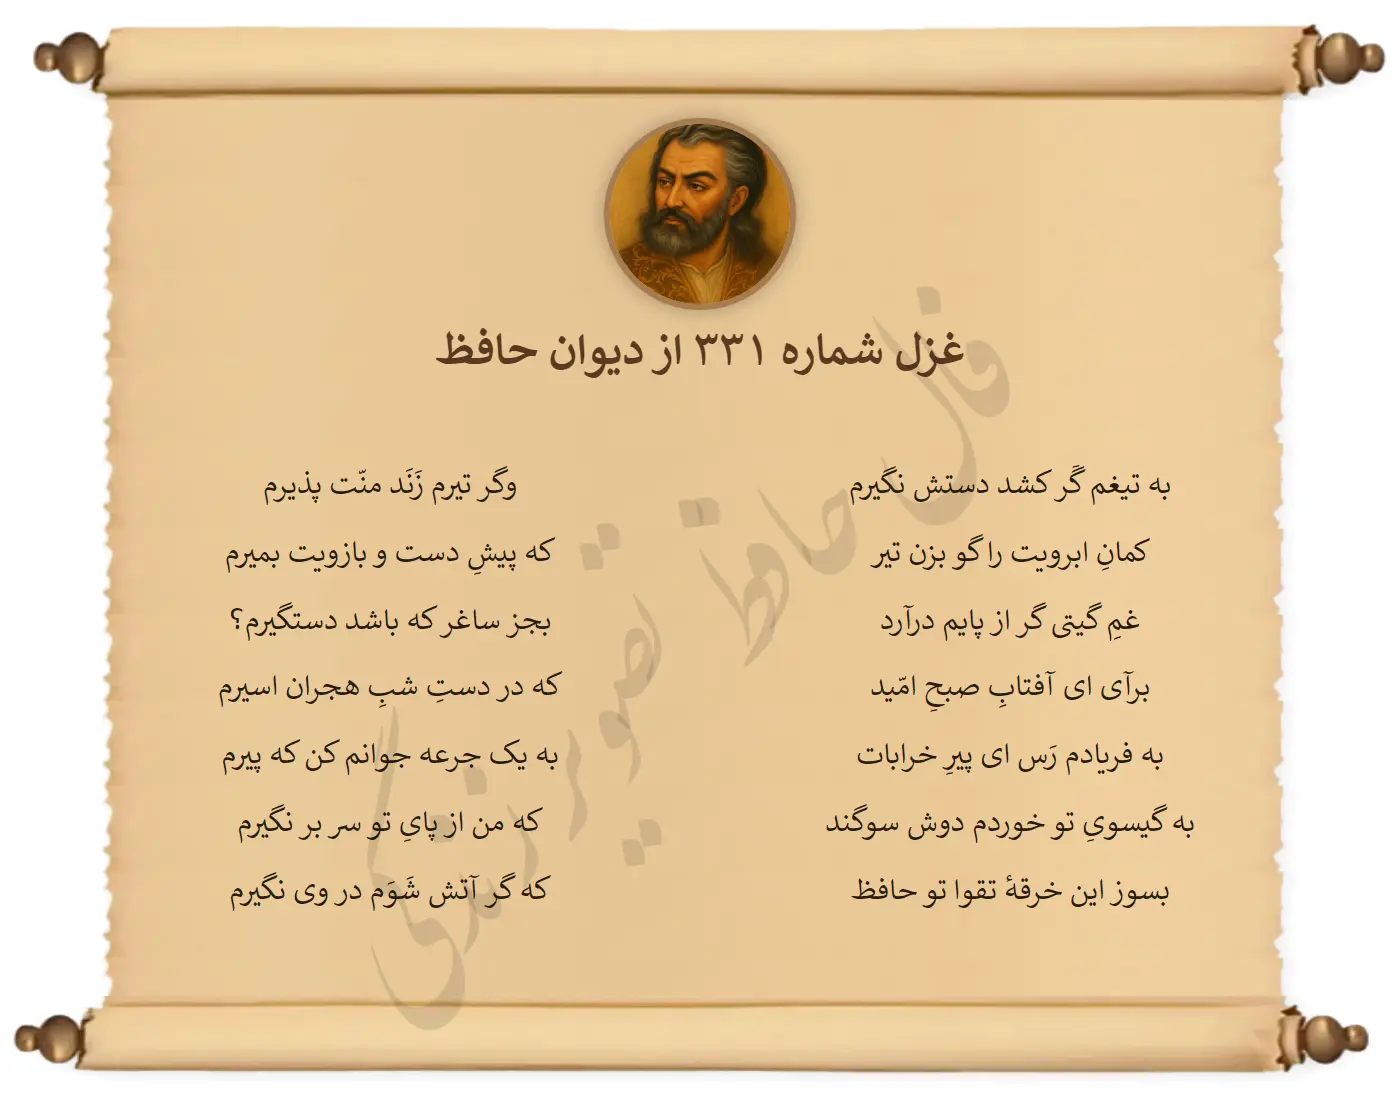 غزل شماره ۳۳۱ از دیوان حافظ
به تیغم گَر کشد دستش نگیرم وگر تیرم زَنَد منّت پذیرم
کمانِ ابرویت را گو بزن تیر که پیشِ دست و بازویت بمیرم
غمِ گیتی گر از پایم درآرد بجز ساغر که باشد دستگیرم؟
برآی ای آفتابِ صبحِ امّید که در دستِ شبِ هجران اسیرم
به فریادم رَس ای پیرِ خرابات به یک جرعه جوانم کن که پیرم
به گیسویِ تو خوردم دوش سوگند که من از پایِ تو سر بر نگیرم
بسوز این خرقهٔ تقوا تو حافظ که گر آتش شَوَم در وی نگیرم
فال حافظ تصویر زندگی